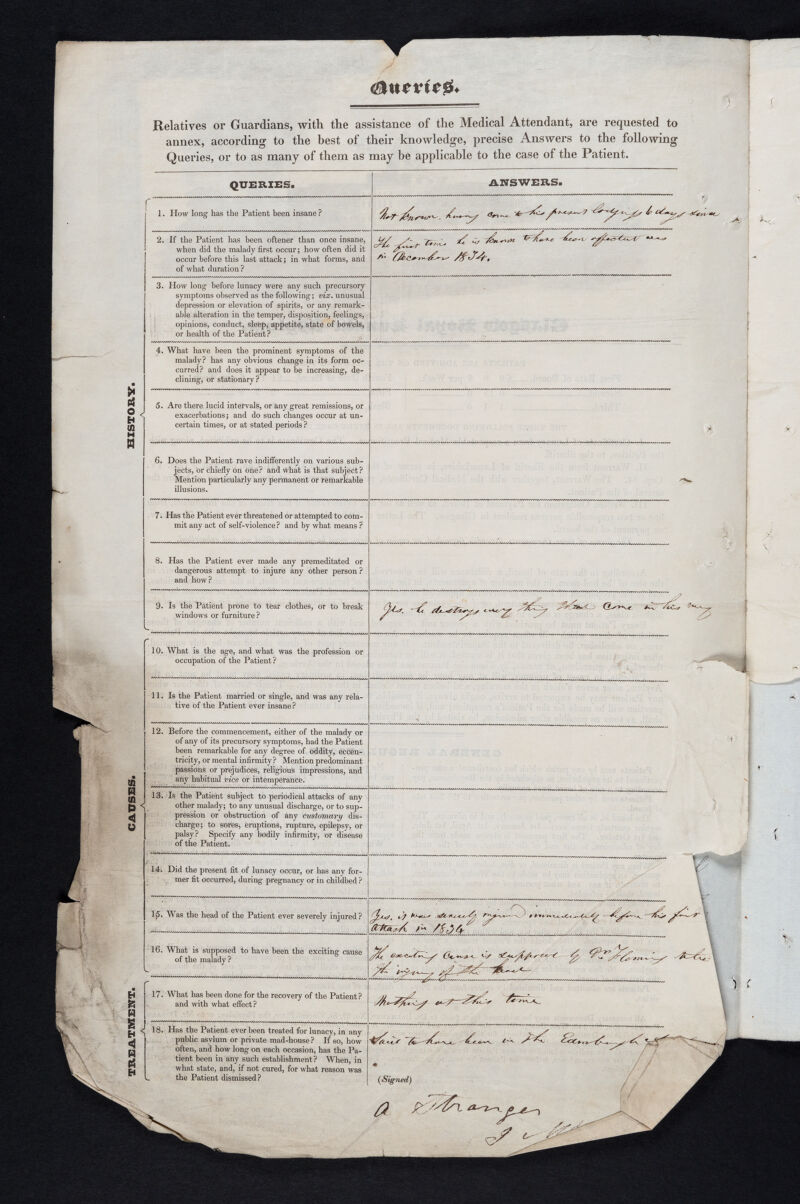 Queries.
Relatives or Guardians, with the assistance of the Medical Attendant, are requested to
annex, according to the best of their knowledge, precise Answers to the following
Queries, or to as many of them as may be applicable to the case of the Patient.
QUERIES.
ANSWERS.
HISTORY.
1. How long has the Patient been insane?
Not known, having come to his present lodgings 6 days since
2. If the Patient has been oftener than once insane,
when did the malady first occur; how often did it
occur before this last attack; in what forms, and
of what duration?
The first time he is known to have been affected was
in December 1834.
3. How long before lunacy were any such precursory
symptoms observed as the following; viz. unusual
depression or elevation of spirits, or any remark-
able alteration in the temper, disposition, feelings,
opinions, conduct, sleep, appetite, state of bowels,
or health of the Patient?
4. What have been the prominent symptoms of the
malady? has any obvious change in its form oc-
curred? and does it appear to be increasing, de-
clining, or stationary?
5. Are there lucid intervals, or any great remissions, or
exacerbations; and do such changes occur at un-
certain times, or at stated periods?
6. Does the Patient rave indifferently on various sub-
jects, or chiefly on one? and what is that subject?
Mention particularly any permanent or remarkable
illusions.
7. Has the Patient ever threatened or attempted to com-
mit any act of self-violence? and by what means?
8. Has the Patient ever made any premeditated or
dangerous attempt to injure any other person?
and how?
9. Is the Patient prone to tear clothes, or to break
windows or furniture?
Yes. he destroys every thing that come in his way
CAUSES.
10. What is the age, and what was the profession or
occupation of the Patient?
11. Is the Patient married or single, and was any rela-
tive of the Patient ever insane?
12. Before the commencement, either of the malady or
of any of its precursory symptoms, had the Patient
been remarkable for any degree of oddity, eccen-
tricity, or mental infirmity? Mention predominant
passions or prejudices, religious impressions, and
any habitual vice or intemperance.
13. Is the Patient subject to periodical attacks of any
other malady; to any unusual discharge, or to sup-
pression or obstruction of any customary dis-
charge; to sores, eruptions, rupture, epilepsy, or
palsy? Specify any bodily infirmity, or disease
of the Patient.
14. Did the present fit of lunacy occur, or has any for-
mer fit occurred, during pregnancy or in childbed?
15. Was the head of the Patient ever severely injured?
Yes, it was severely injured immediately before his first
attack in 1834
16. What is supposed to have been the exciting cause
of the malady?
The exciting cause is supposed by Dr. Fleming to be
the injury of the head
TREATMENT.
17. What has been done for the recovery of the Patient?
and with what effect?
Nothing at this time
18. Has the Patient ever been treated for lunacy, in any
public asylum or private mad-house? If so, how
often, and how long on each occasion, has the Pa-
tient been in any such establishment? When, in
what state, and, if not cured, for what reason was
the Patient dismissed?
Said to have been in the Edinburgh
(Signed)
a Stranger